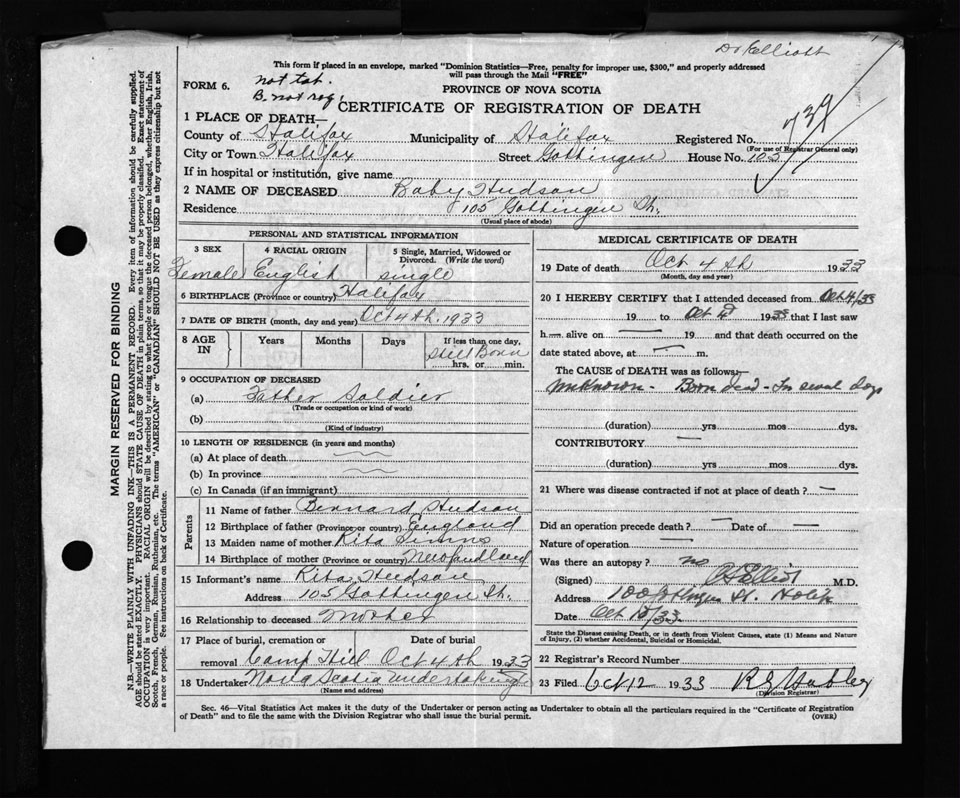 Dr Elliott
This form if placed in an envelope, marked "Dominion Statistics—Free, penalty for improper use, $300," and properly addressed
will pass through the Mail "FREE"
FORM 6.
not tab.
B. not reg.
PROVINCE OF NOVA SCOTIA
CERTIFICATE OF REGISTRATION OF DEATH
739
1 PLACE OF DEATH—
County of Halifax Municipality of Halifax Registered No.
(For use of Registrar General only)
City or Town Halifax Street Gottingen House No. 105
If in hospital or institution, give name
2 NAME OF DECEASED Baby Hudson
Residence 105 Gottingen St.
(Usual place of abode)
PERSONAL AND STATISTICAL INFORMATION
3 SEX 4 RACIAL ORIGIN 5 Single, Married, Widowed or Divorced. (Write the word)
Female English single
6 BIRTHPLACE (Province or country) Halifax
7 DATE OF BIRTH (month, day and year) Oct 4th. 1933
8 AGE IN Years Months Days If less than one day,
Still Born
hrs. or min.
9 OCCUPATION OF DECEASED
(a) Father Soldier
(Trade or occupation or kind of work)
(b)
(Kind of industry)
10 LENGTH OF RESIDENCE (in years and months)
(a) At place of death
(b) In province
(c) In Canada (if an immigrant)
Parents
11 Name of father Bernard Hudson
12 Birthplace of father (Province or country) England
13 Maiden name of mother Rita
14 Birthplace of mother (Province or country) Newfundland
15 Informant's name Rita Hudson
Address 105 Gottingen St.
16 Relationship to deceased Mother
17 Place of burial, cremation or Date of burial
removal Camp Hill Oct 4th 1933
18 Undertaker Nova Scotia Undertaking
(Name and address)
MEDICAL CERTIFICATE OF DEATH
19 Date of death Oct 4th 1933
(Month, day and year)
20 I HEREBY CERTIFY that I attended deceased from Oct 4/33
19 to Oct 4 1933 that I last saw
h— alive on 19 and that death occurred on the
date stated above, at m.
The CAUSE OF DEATH was as follows:
unknown - Born dead - In several days
(duration) yrs mos dys.
CONTRIBUTORY
(duration) yrs mos dys.
21 Where was disease contracted if not at place of death?
Did an operation precede death? Date of
Nature of operation
Was there an autopsy? no
(Signed) Elliott M.D.
Address 100 Gottingen St. Halifax
Date Oct /33
State the Disease causing Death, or in death from Violent Causes, state (1) Means and Nature
of Injury, (2) whether Accidental, Suicidal or Homicidal.
22 Registrar's Record Number
23 Filed Oct 12 1933
(Division Registrar)
Sec. 46—Vital Statistics Act makes it the duty of the Undertaker or person acting as Undertaker to obtain all the particulars required in the "Certificate of Registration
of Death" and to file the same with the Division Registrar who shall issue the burial permit.
(OVER)
MARGIN RESERVED FOR BINDING
N.B.—WRITE PLAINLY WITH UNFADING INK—THIS IS A PERMANENT RECORD. Every item of information should be carefully supplied.
AGE should be stated EXACTLY. PHYSICIANS should STATE CAUSE OF DEATH in plain terms, so that it may be properly classified. Exact statement of
OCCUPATION is very important. RACIAL ORIGIN will be described by stating to what people or tongue the deceased person belonged, whether English, Irish,
Scotch, French, German, Russian, Ruthenian, etc. The terms "AMERICAN" or "CANADIAN" SHOULD NOT BE USED as they express citizenship but not
a race or people. See instructions on back of Certificate.